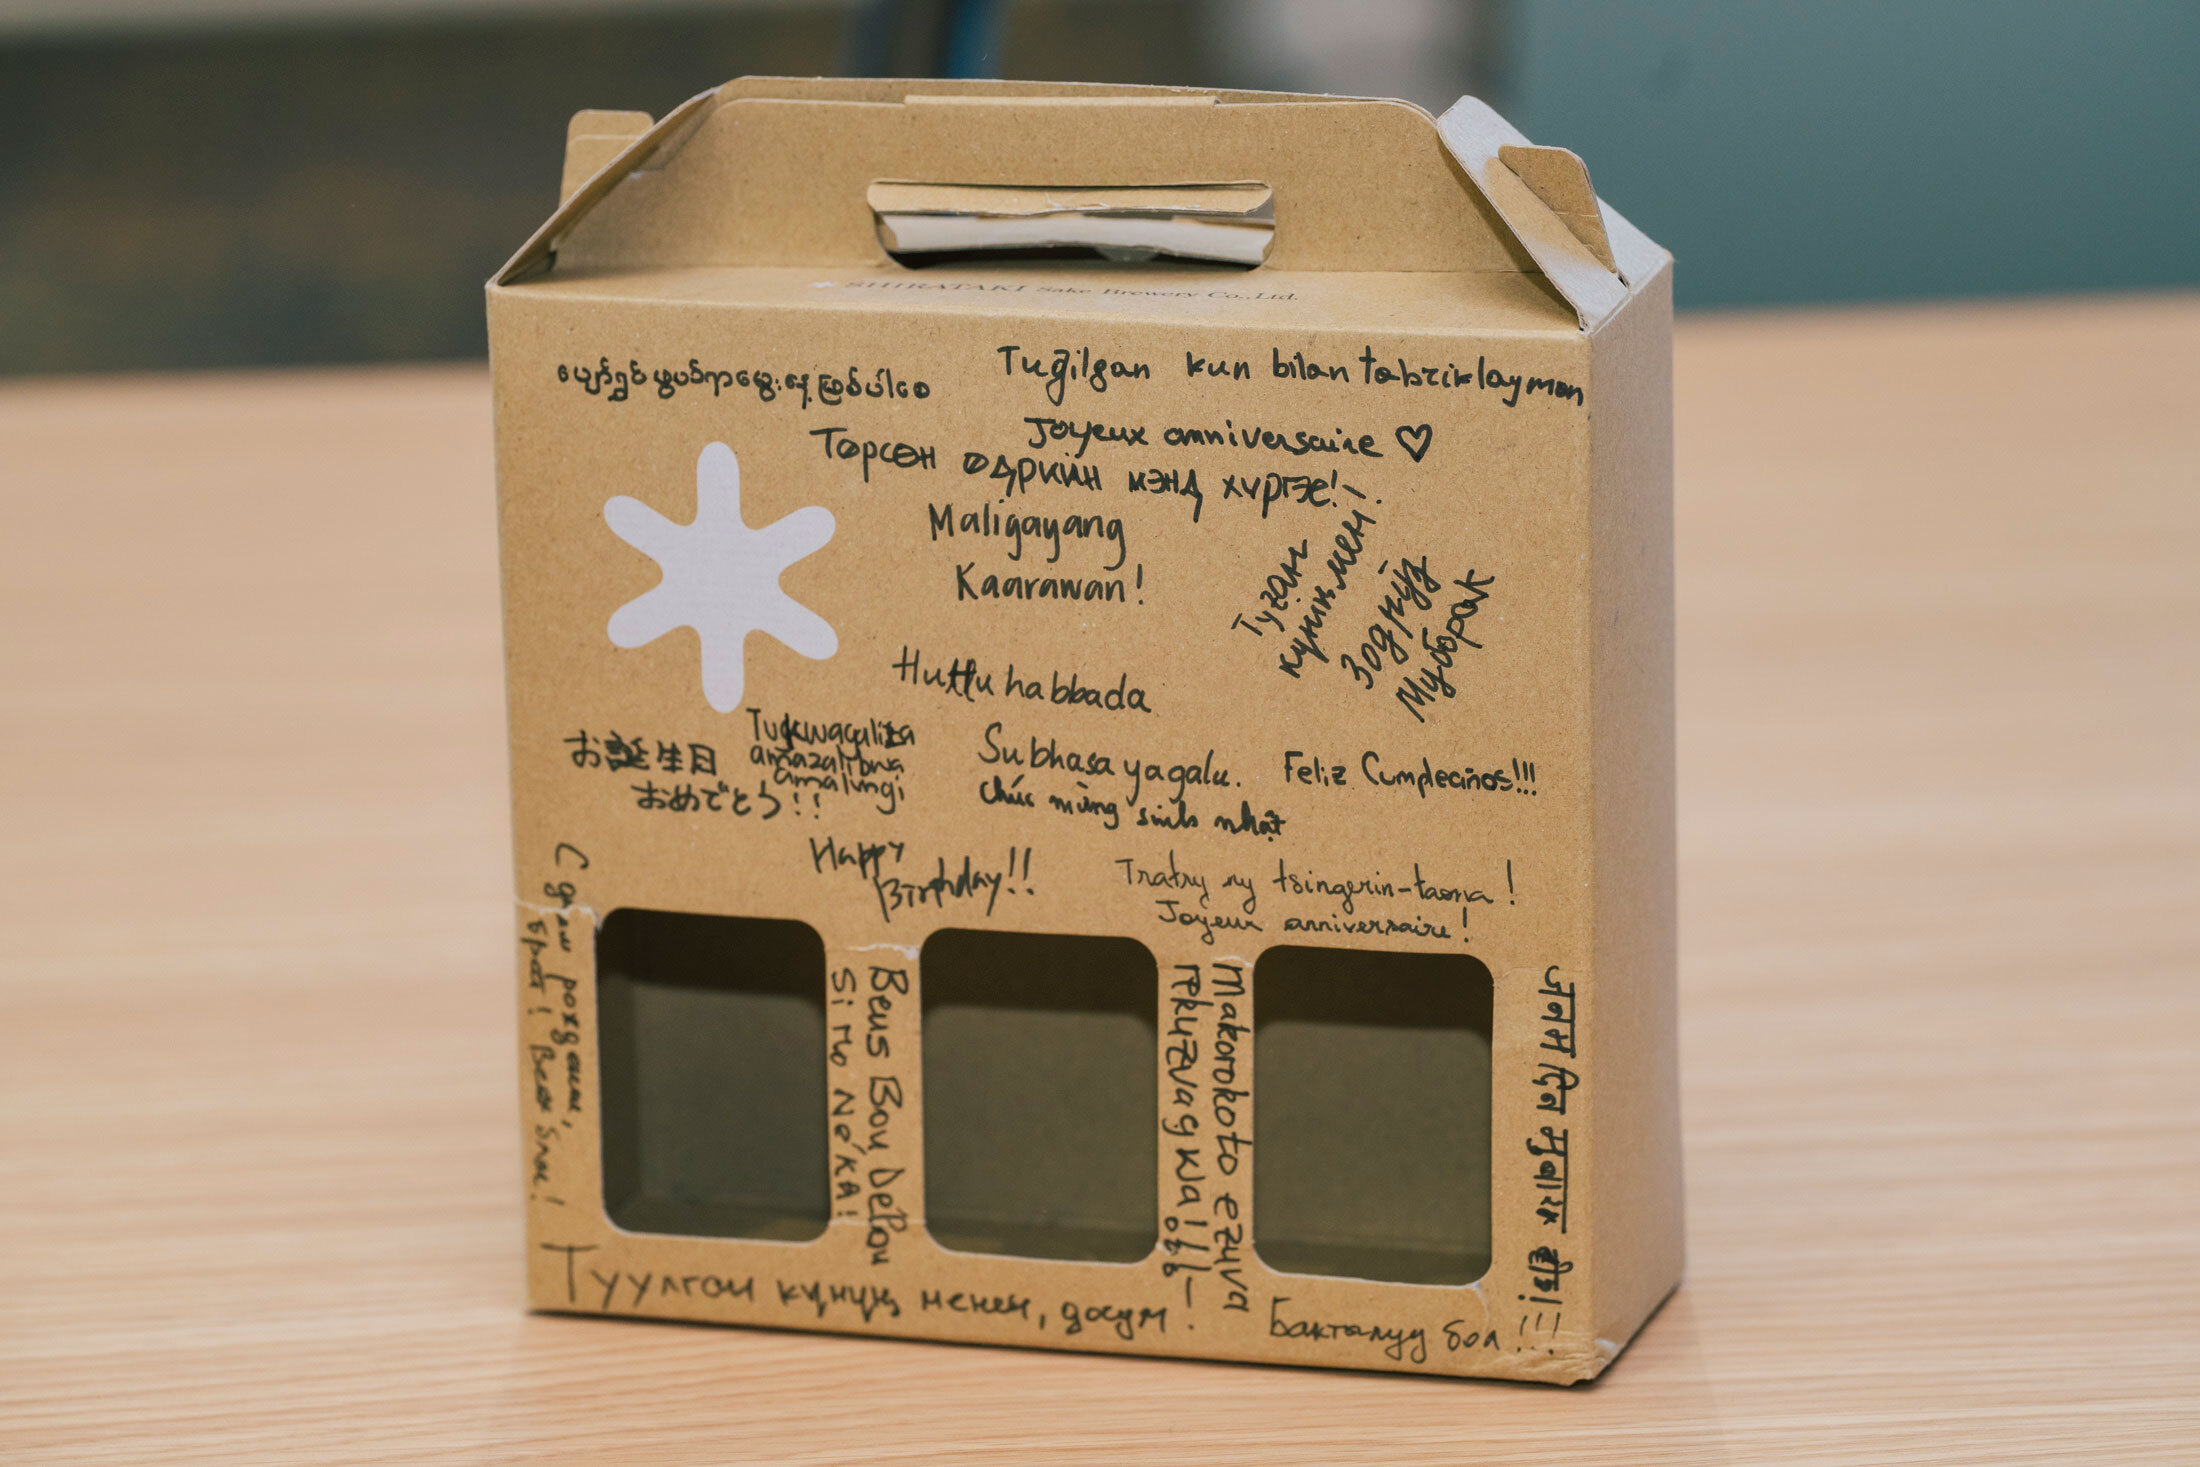 SHIRATAKI Sake Brewery Co.,Ltd.
ပျော်ရွှင်ဖွယ်ရာမွေးနေ့ဖြစ်ပါစေ
Tug̃ilgan kun bilan tabriklayman
Joyeux anniversaire ♡
Төрсөн өдрийн мэнд хүргэе!
Maligayang
Kaarawan!
Туған
күнің мен!
Зодрӯз
Муборак
Huttu habbada
お誕生日
おめでとう!!
Tugkwagaliza
amazalibwa
amalungi
Subhasa yagalu.
Feliz Cumpleaños!!!
chúc mừng sinh nhật
Happy
Birthday!!
Tratry ny tsingerin-taona!
Joyeux anniversaire!
С днем рождения,
брат! Всех благ!
Beus Bou Delou
Si Mo Né KA!
Makorokoto ezuva
rekuzvagkwa!
जनम दिन मुबारक हो!!
Туулган күнүң менен, досум!
Бактылуу бол!!!